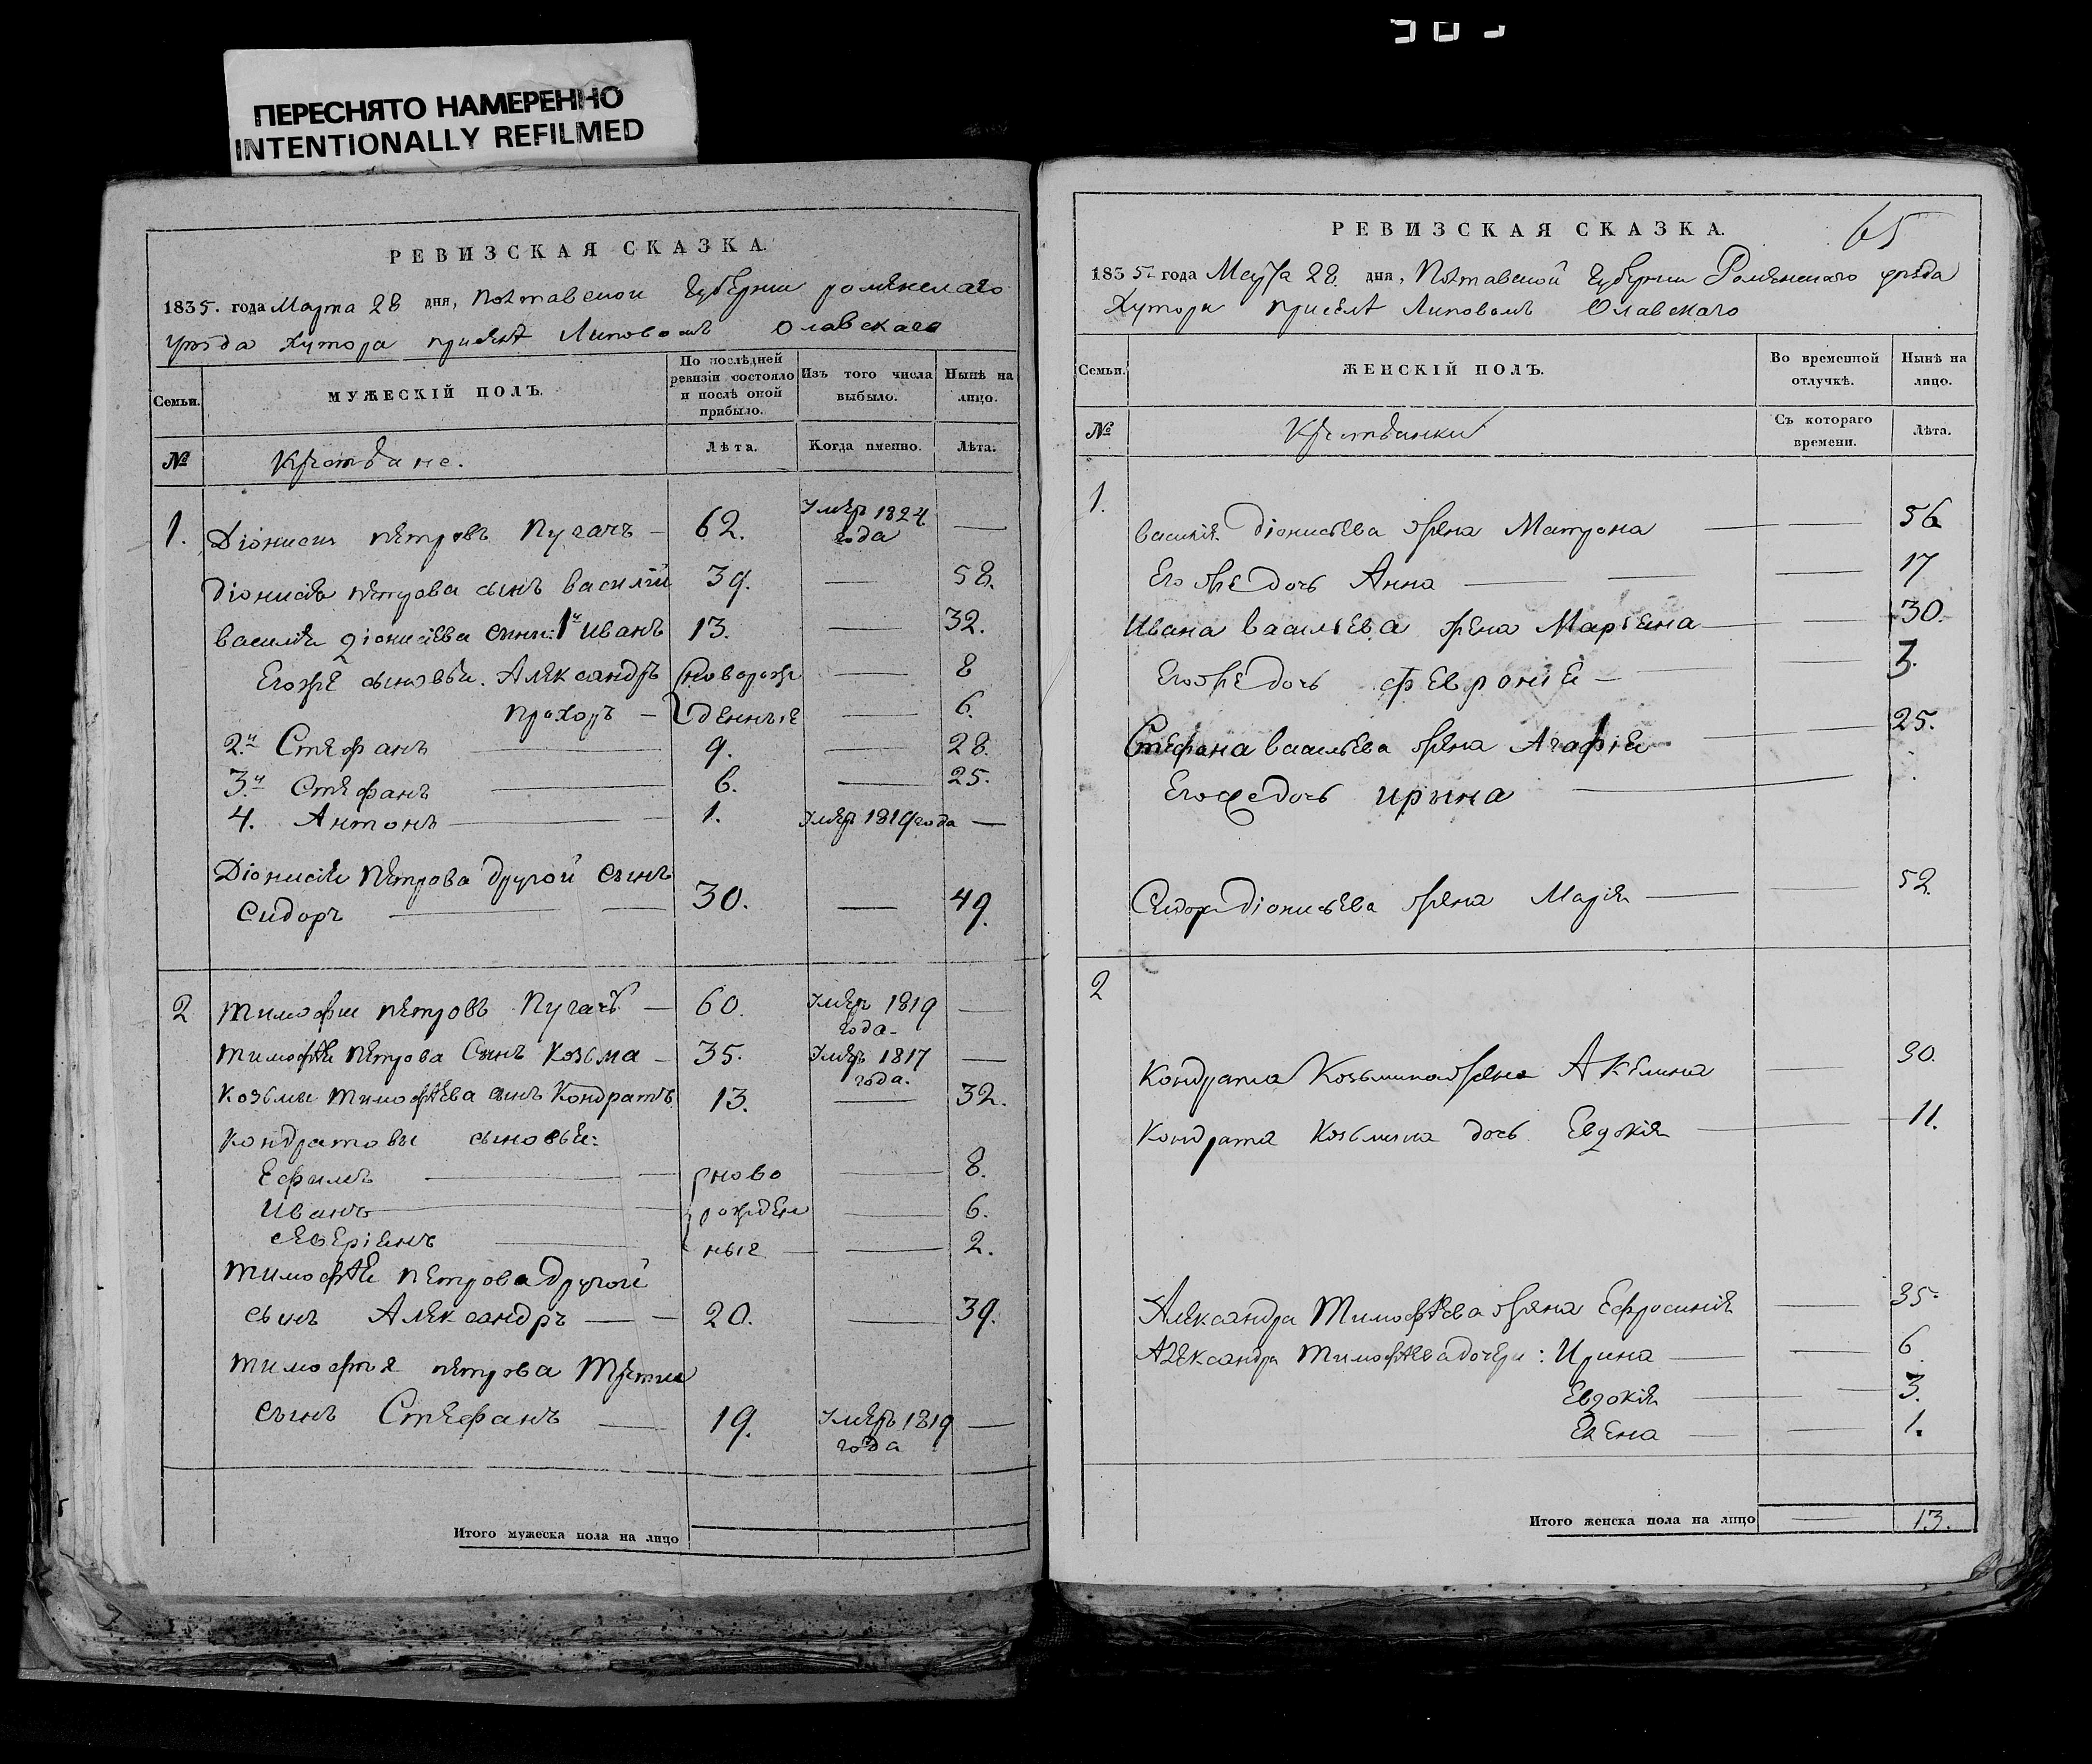 ПЕРЕСНЯТО НАМЕРЕННО
INTENTIONALLY REFILMED
РЕВИЗСКАЯ СКАЗКА.
1835. года Марта 28 дня, Полтавской Губернии роменскаго
уезда Хутора приселѣ Липовомъ Олавскаго
Семьи.
МУЖЕСКІЙ ПОЛЪ.
По послѣдней ревизіи состояло и послѣ оной прибыло.
Изъ того числа выбыло.
Нынѣ на лицо.
№
Крестьяне.
Лѣта.
Когда именно.
Лѣта.
1. Діонисий петровъ Пугачъ — 62. Умеръ 1824 года —
Діонисія петрова сынъ василій 39. — 58.
василія діонисіева сыны: 1й иванъ 13. — 32.
Егоже сыновья. Александръ новорож — 8
прохоръ — денные — 6.
2й Стефанъ — 9. — 28.
3й Стефанъ — 6. — 25.
4. Антонъ — 1. Умеръ 1819 года —
Діонисія Петрова другой сынъ
Сидоръ — 30. — 49.
2 тимофей петровъ Пугачъ — 60. Умеръ 1819 года —
тимофѣя петрова Сынъ Козьма — 35. Умеръ 1817 года. —
Козьмы тимофѣева сынъ Кондратъ 13. — 32.
Кондратовы сыновья:
Ефимъ — ново — 8.
Иванъ — рожден — 6.
северіянъ — ные — 2.
тимофѣя петрова другой
сынъ Александръ — 20. — 39.
тимофея петрова третий
сынъ Стефанъ — 19. Умеръ 1819 года —
Итого мужеска пола на лицо
65
РЕВИЗСКАЯ СКАЗКА.
1835 года Марта 28. дня, Полтавской Губернии Роменскаго уезда
Хутора приселѣ Липовомъ Олавскаго
Семьи.
ЖЕНСКІЙ ПОЛЪ.
Во временной отлучкѣ.
Нынѣ на лицо.
№
Крестьянки
Съ котораго времени.
Лѣта.
1.
василія Діонисьева жена Матрона — 56
Его же дочь Анна — 17
Ивана васильева жена Маріяна — 30.
Егоже дочь февронія — 3.
Стефана васильева жена Агафія — 25.
Егоже дочь ирына —
Сидора Діонисьева жена Марія — 52.
2
Кондрата Козьмина жена Акелина — 30.
Кондрата Козьмина дочь Евдокія — 11.
Александра Тимофѣева жена Ефросинія — 35.
Александра тимофѣева дочери: Ирина — 6
Евдокія — 3.
Елена — 1.
Итого женска пола на лицо — 13.